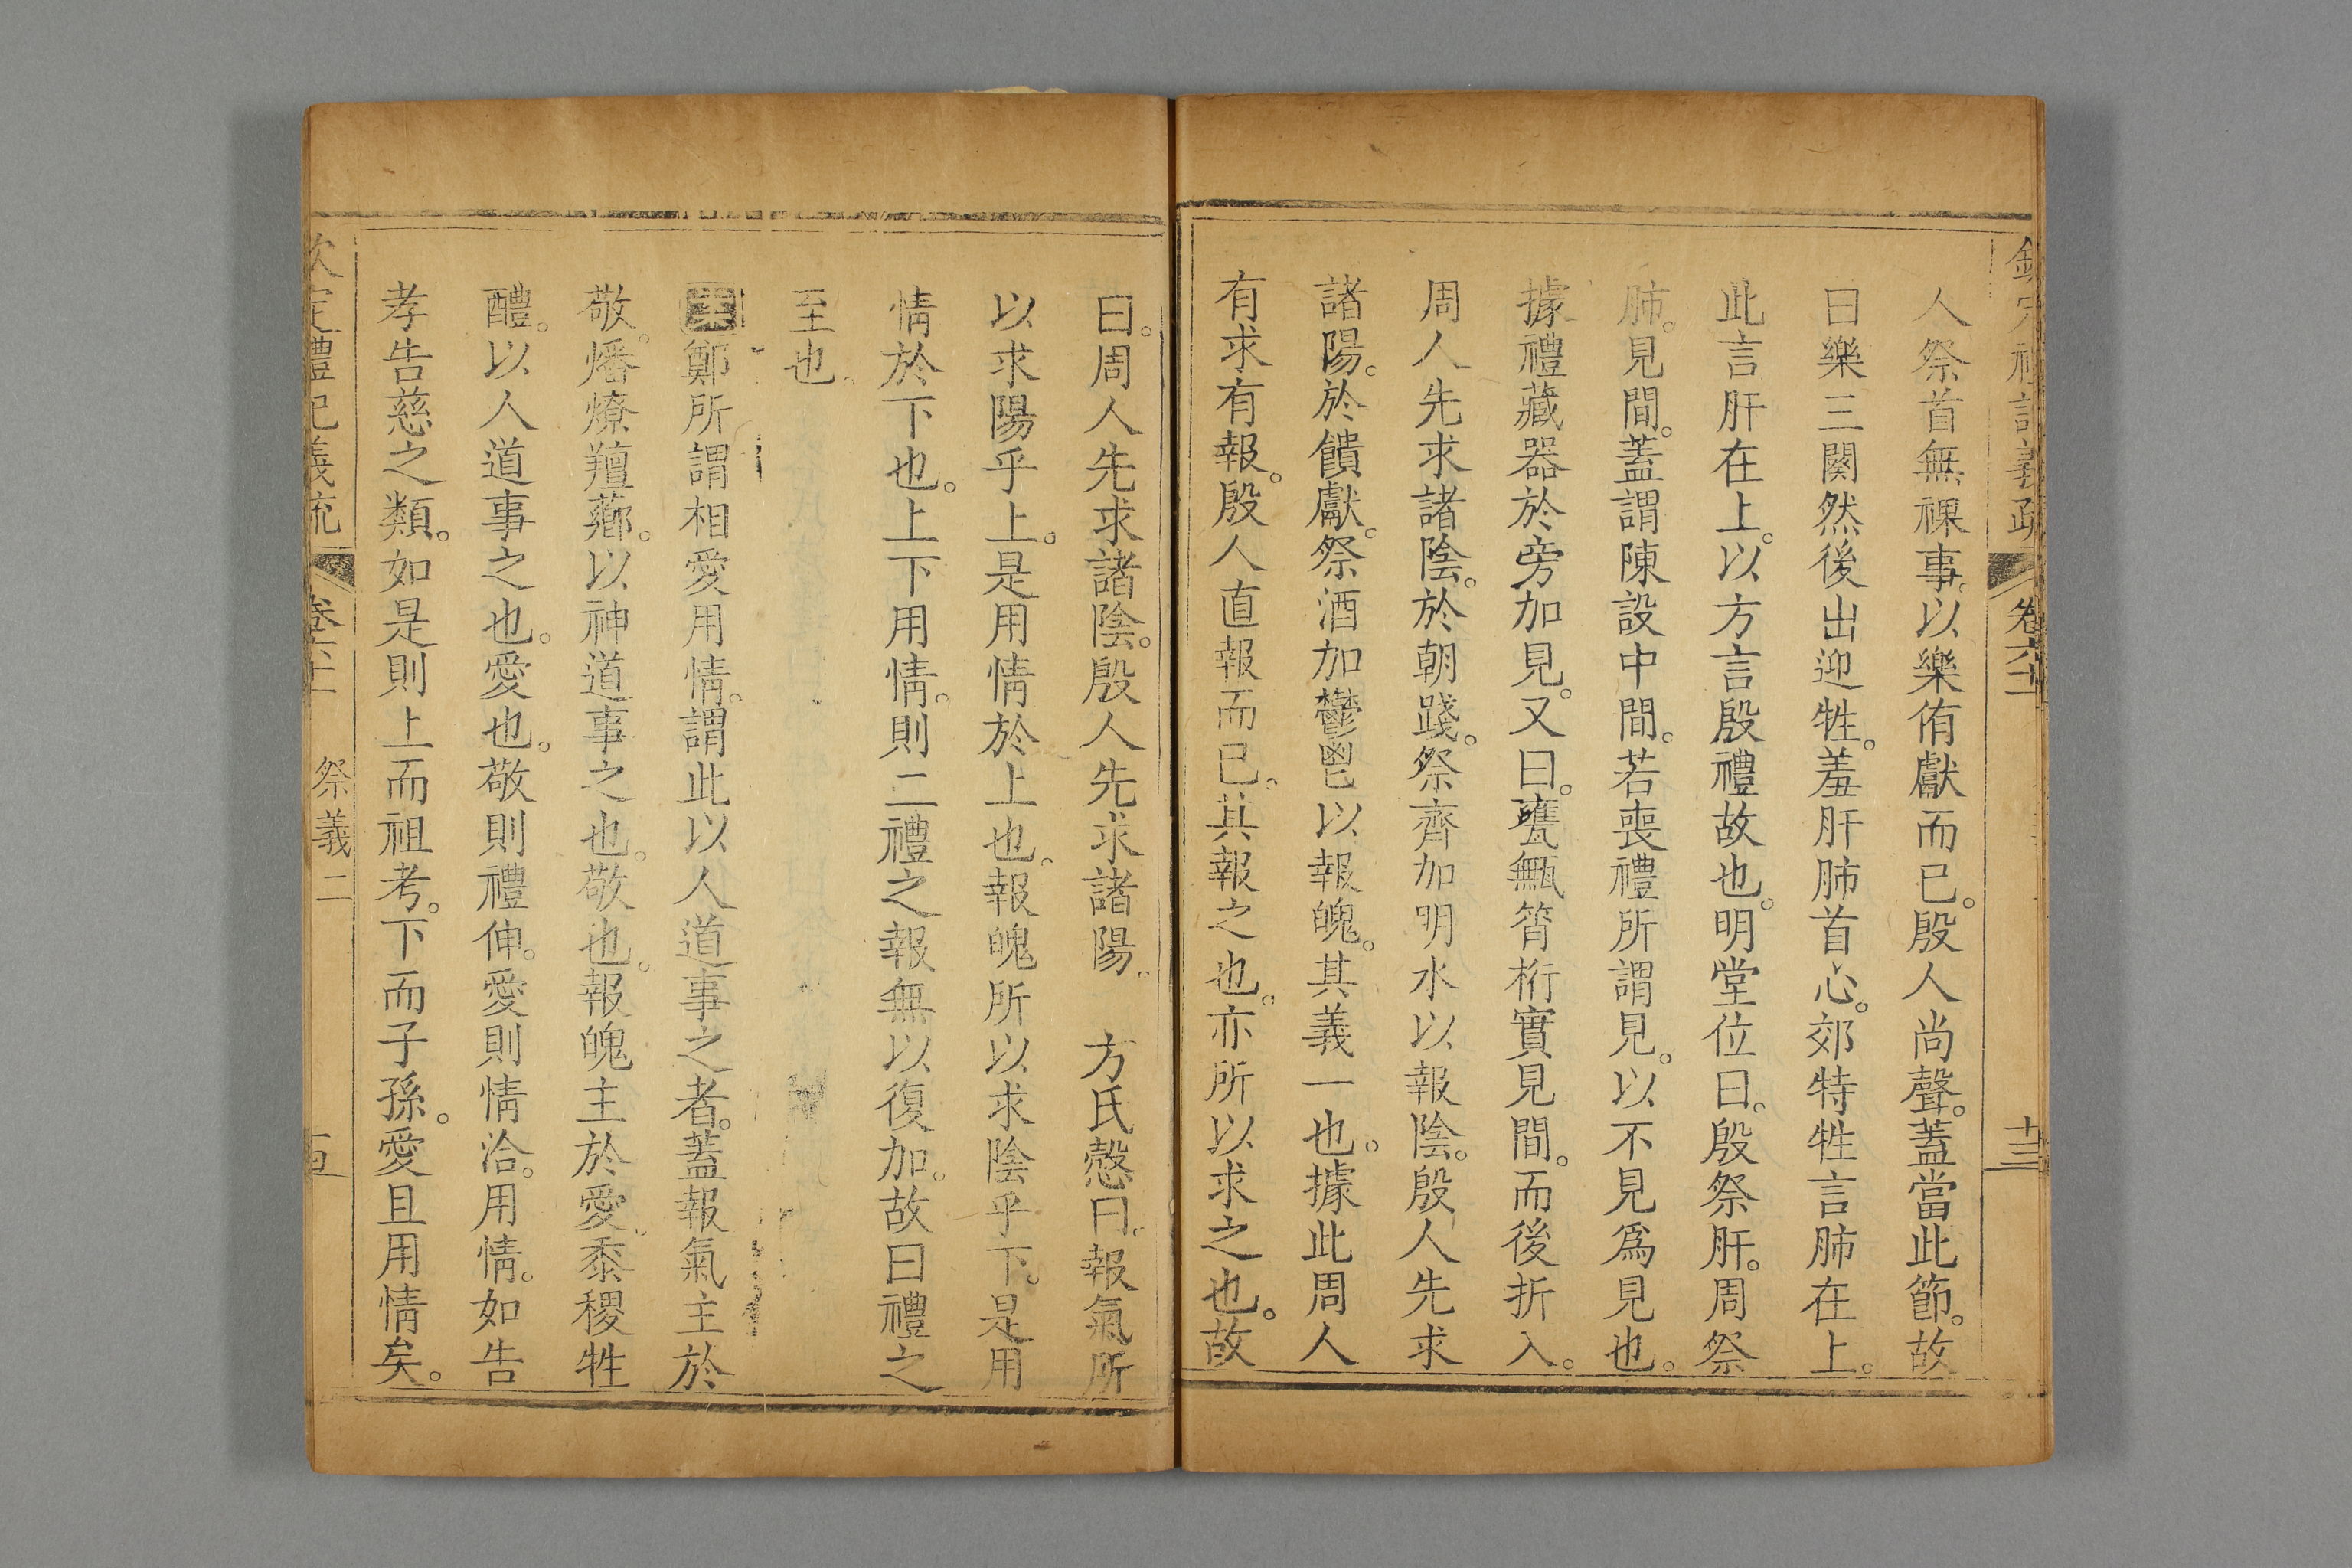 欽定禮記義疏 卷六十一 十三
人祭首無祼事。以樂侑獻而已。殷人尚聲。蓋當此節。故
曰樂三闋然後出迎牲。羞肝肺首心。郊特牲言肺在上。
此言肝在上。以方言殷禮故也。明堂位曰。殷祭肝。周祭
肺。見間。蓋謂陳設中間。若喪禮所謂見。以不見爲見也。
據禮藏器於旁加見。又曰。甕甒筲桁實見間。而後折入。
周人先求諸陰。於朝踐。祭齊加明水以報陰。殷人先求
諸陽。於饋獻。祭酒加鬱鬯以報魄。其義一也。據此周人
有求有報。殷人直報而已。其報之也。亦所以求之也。故
曰。周人先求諸陰。殷人先求諸陽。 方氏慤曰。報氣所
以求陽乎上。是用情於上也。報魄所以求陰乎下。是用
情於下也。上下用情。則二禮之報無以復加。故曰禮之
至也。
鄭所謂相愛用情。謂此以人道事之者。蓋報氣主於
敬。燔燎羶薌。以神道事之也。敬也。報魄主於愛。黍稷牲
醴。以人道事之也。愛也。敬則禮伸。愛則情洽。用情。如告
孝告慈之類。如是則上而祖考。下而子孫。愛且用情矣。
欽定禮記義疏 卷六十一 祭義二